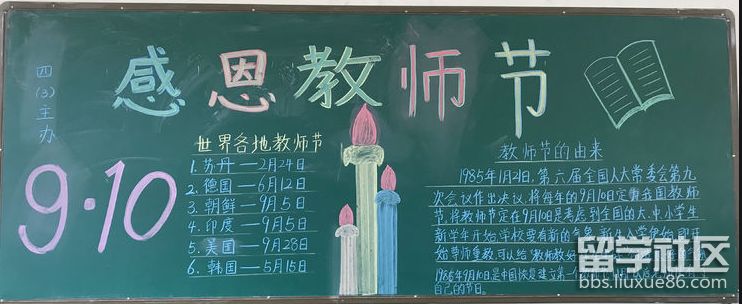 感恩教师节
四(3)主办
9·10
世界各地教师节
1.苏丹—2月24日
2.德国—6月12日
3.朝鲜—9月5日
4.印度—9月5日
5.美国—9月28日
6.韩国—5月15日
教师节的由来
1985年1月21日,第六届全国人大常委会第九
次会议作出决议,将每年的9月10日定为我国教师
节,将教师节定在9月10日是考虑到全国的大、中、小学生
新学年开始学校要有新的气象,新生入学伊始,即开
始尊师重教,可以给"教师教好
1985年9月10日是中国恢复建立第一
自己的节日。
留学社区
bbs.liuxue86.com